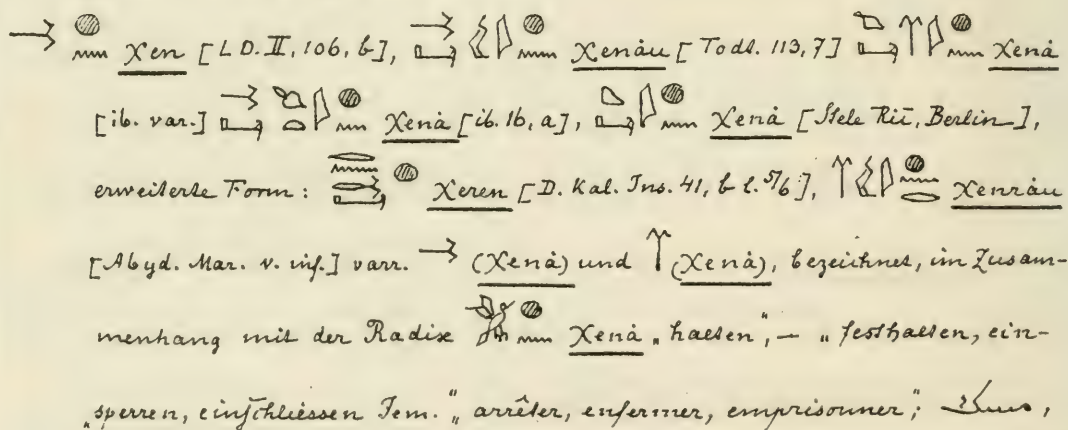 Xen [L D. II, 106, b], Xenȧu [Todt. 113, 7] Xenȧ
[ib. var.] Xenȧ [ib. 1b, a], Xenȧ [Stele Berlin],
erweiterte Form: Xeren [D. Kal. Ins. 41, b l. 5/6], Xenrȧu
[Abyd. Mar. v. inf.] varr. (Xenȧ) und (Xenȧ), bezeichnet, im Zusam-
menhang mit der Radix Xenȧ „halten“, – „festhalten, ein-
„sperren, einschliessen Jem.“ arrêter, enfermer, emprisonner“;